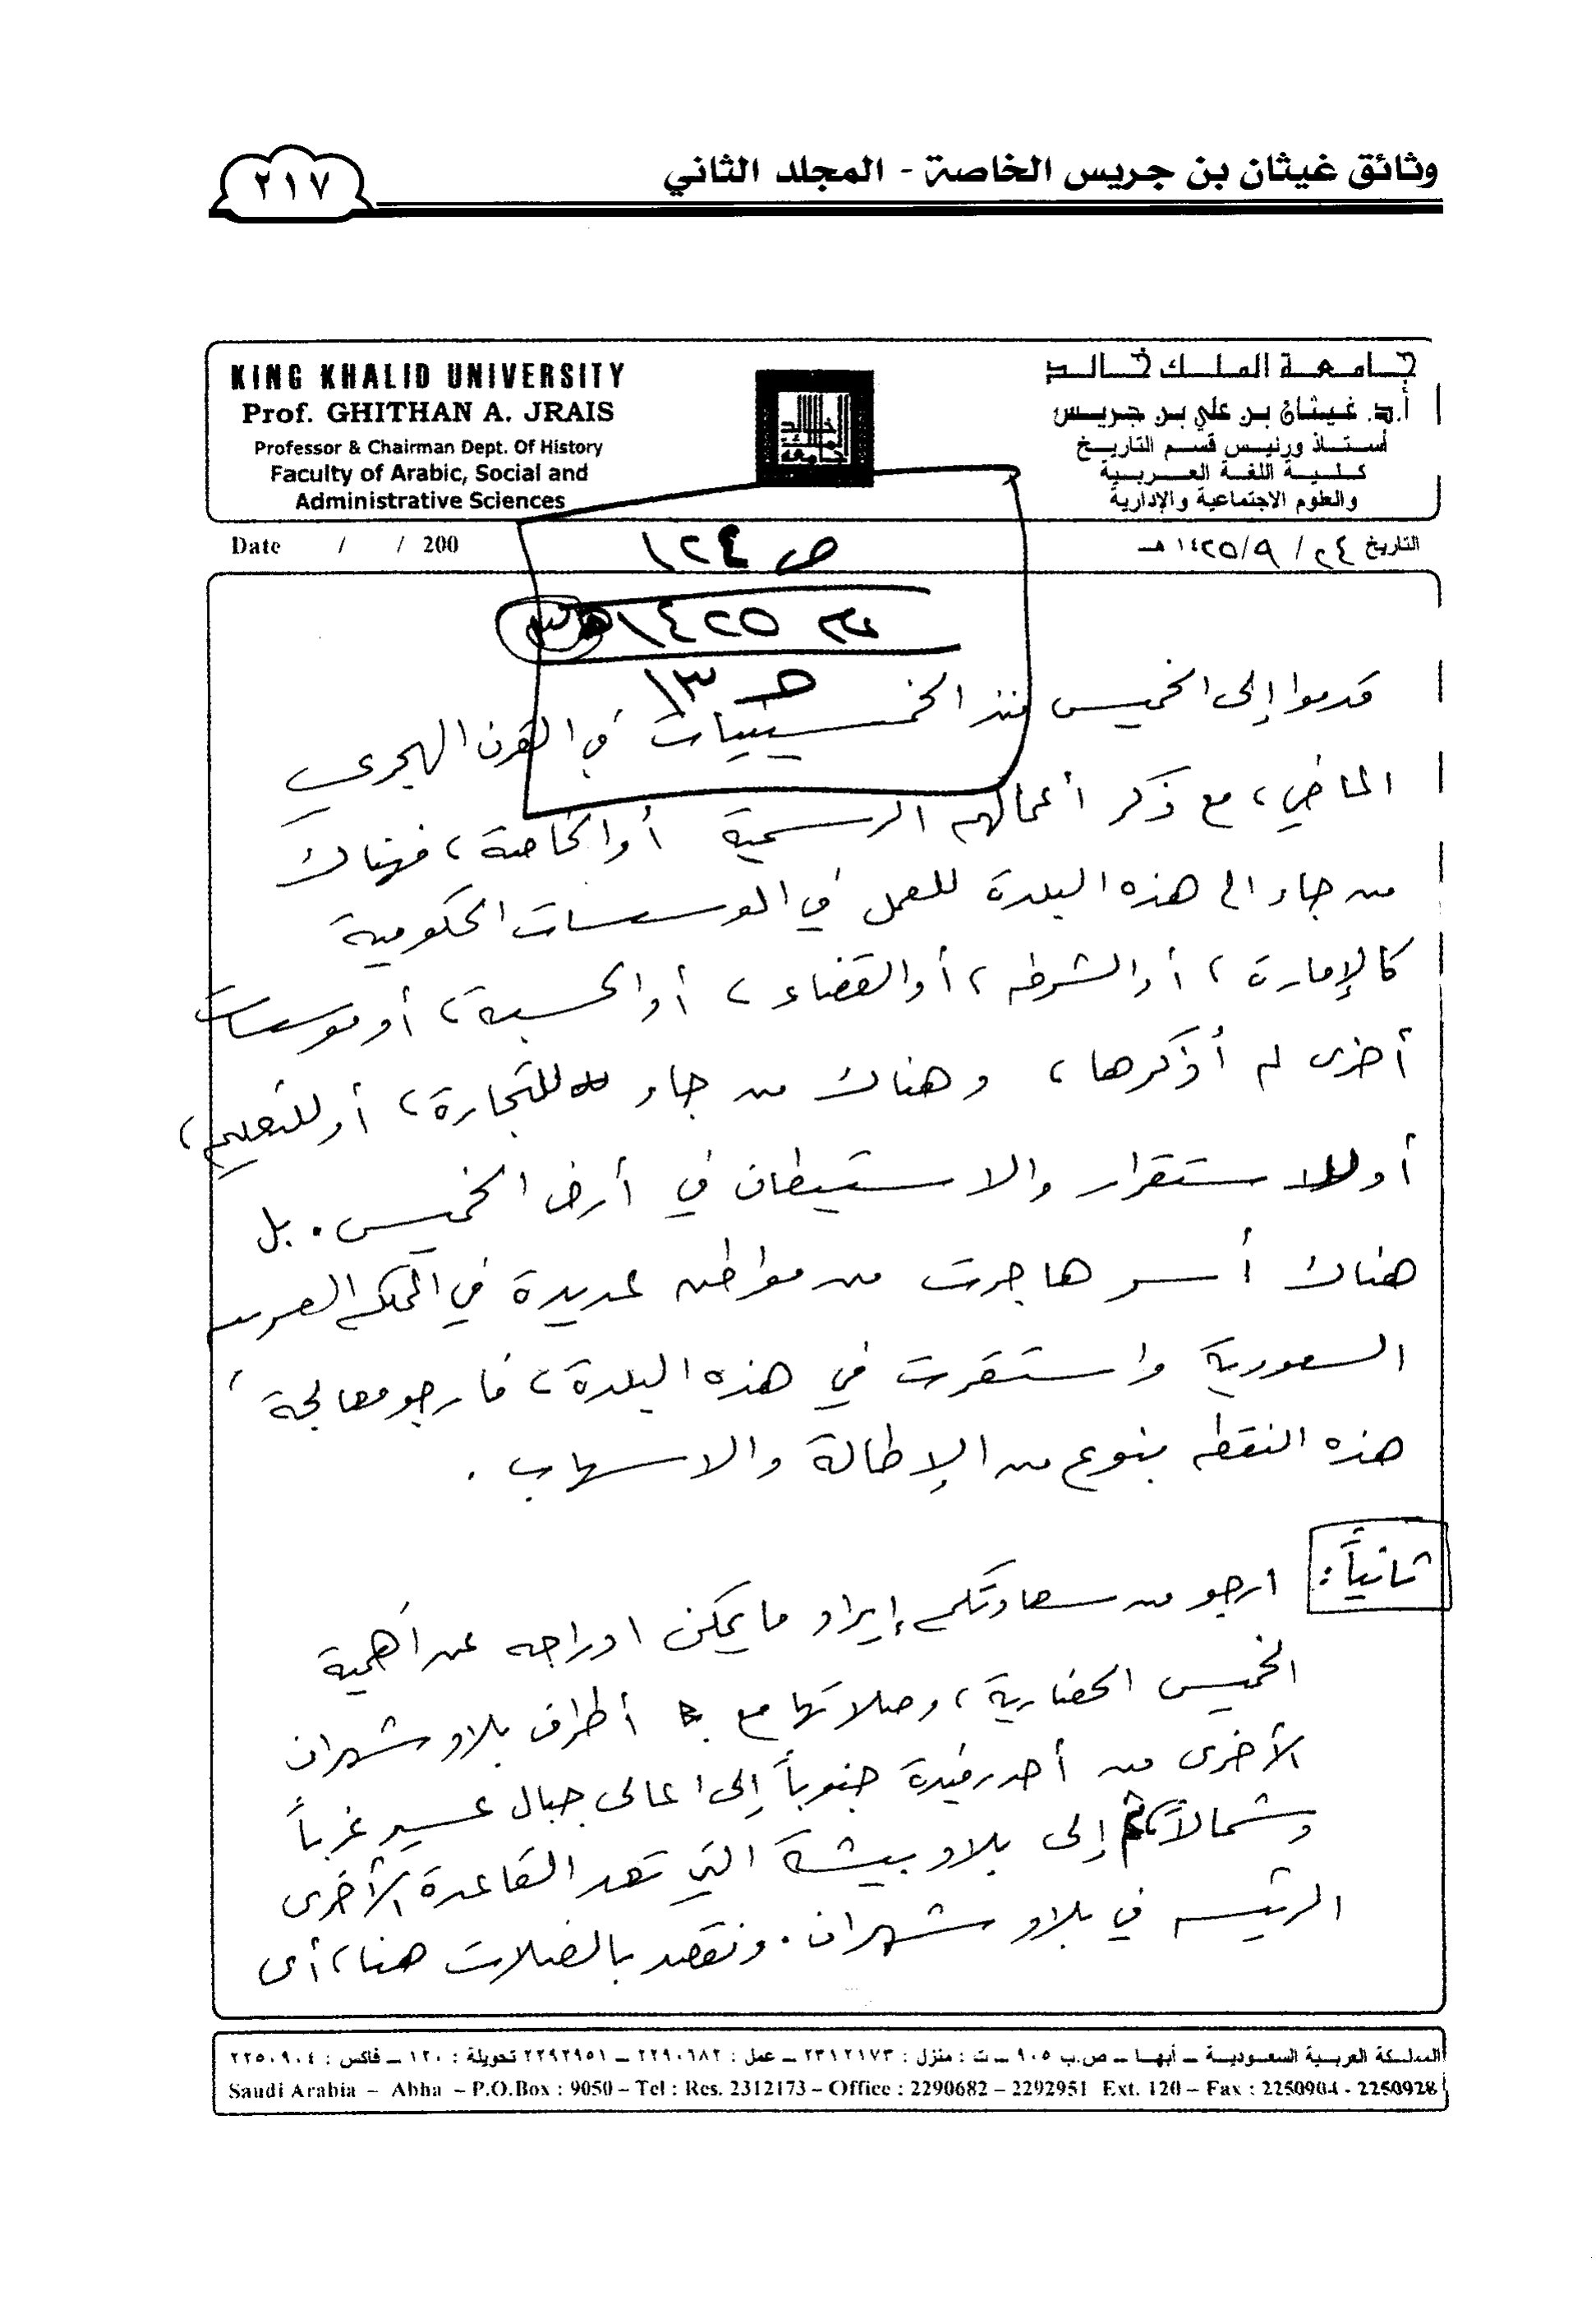 وثائق غيثان بن جريس الخاصة - المجلد الثاني
٢١٧
KING KHALID UNIVERSITY
Prof. GHITHAN A. JRAIS
Professor & Chairman Dept. Of History
Faculty of Arabic, Social and
Administrative Sciences
جامعة الملك خالد
أ.د. غيثان بن علي بن جريس
أستاذ ورئيس قسم التاريخ
كلية اللغة العربية
والعلوم الاجتماعية والإدارية
خالد
الملك
جامعة
Date / / 200
التاريخ ٢٤ / ٩/ ١٤٢٥هـ
ص ١٢٤
١٤٢٥
١٣
قدموا إلى الخميس منذ الخمسينيات في القرن الهجري
الماضي، مع ذكر أعمالهم الرسمية أو الخاصة، فهناك
من جاء الى هذه البلدة للعمل في الموسسات الحكومية
كالإمارة، أو الشرطه، أو القضاء، أو الحسبة، أو موسسات
أخرى لم أذكرها، وهناك من جاء للتجارة، أو للتعليم،
أو للاستقرار والاستيطان في أرض الخميس. بل
هناك أسر هاجرت من مواطن عديدة في المملكه العربيه
السعودية واستقرت في هذه البلدة، فارجو معالجة
هذه النقطه بنوع من الإطالة والاسهاب.
ثانياً: ارجو من سعادتكم إيراد ما يمكن ادراجه عن أهمية
الخميس الحضارية، وصلاتها مع أطراف بلاد شهران
الأخرى من أحد رفيدة جنوباً إلى اعالي جبال عسير غرباً
وشمالاً، إلى بلاد بيشة التي تعد القاعدة الأخرى
الرئيسه في بلاد شهران. ونقصد بالصلات هنا، أي
المملكة العربية السعودية – أبها – ص.ب ٩٠٥ – ت : منزل : ٢٣١٢١٧٣ – عمل : ٢٢٩٠٦٨٢ – ٢٢٩٢٩٥١ تحويلة : ١٢٠ – فاكس : ٢٢٥٠٩٠٤
Saudi Arabia – Abha – P.O.Box : 9050 – Tel : Res. 2312173 – Office : 2290682 – 2292951 Ext. 120 – Fax : 2250904 - 2250928